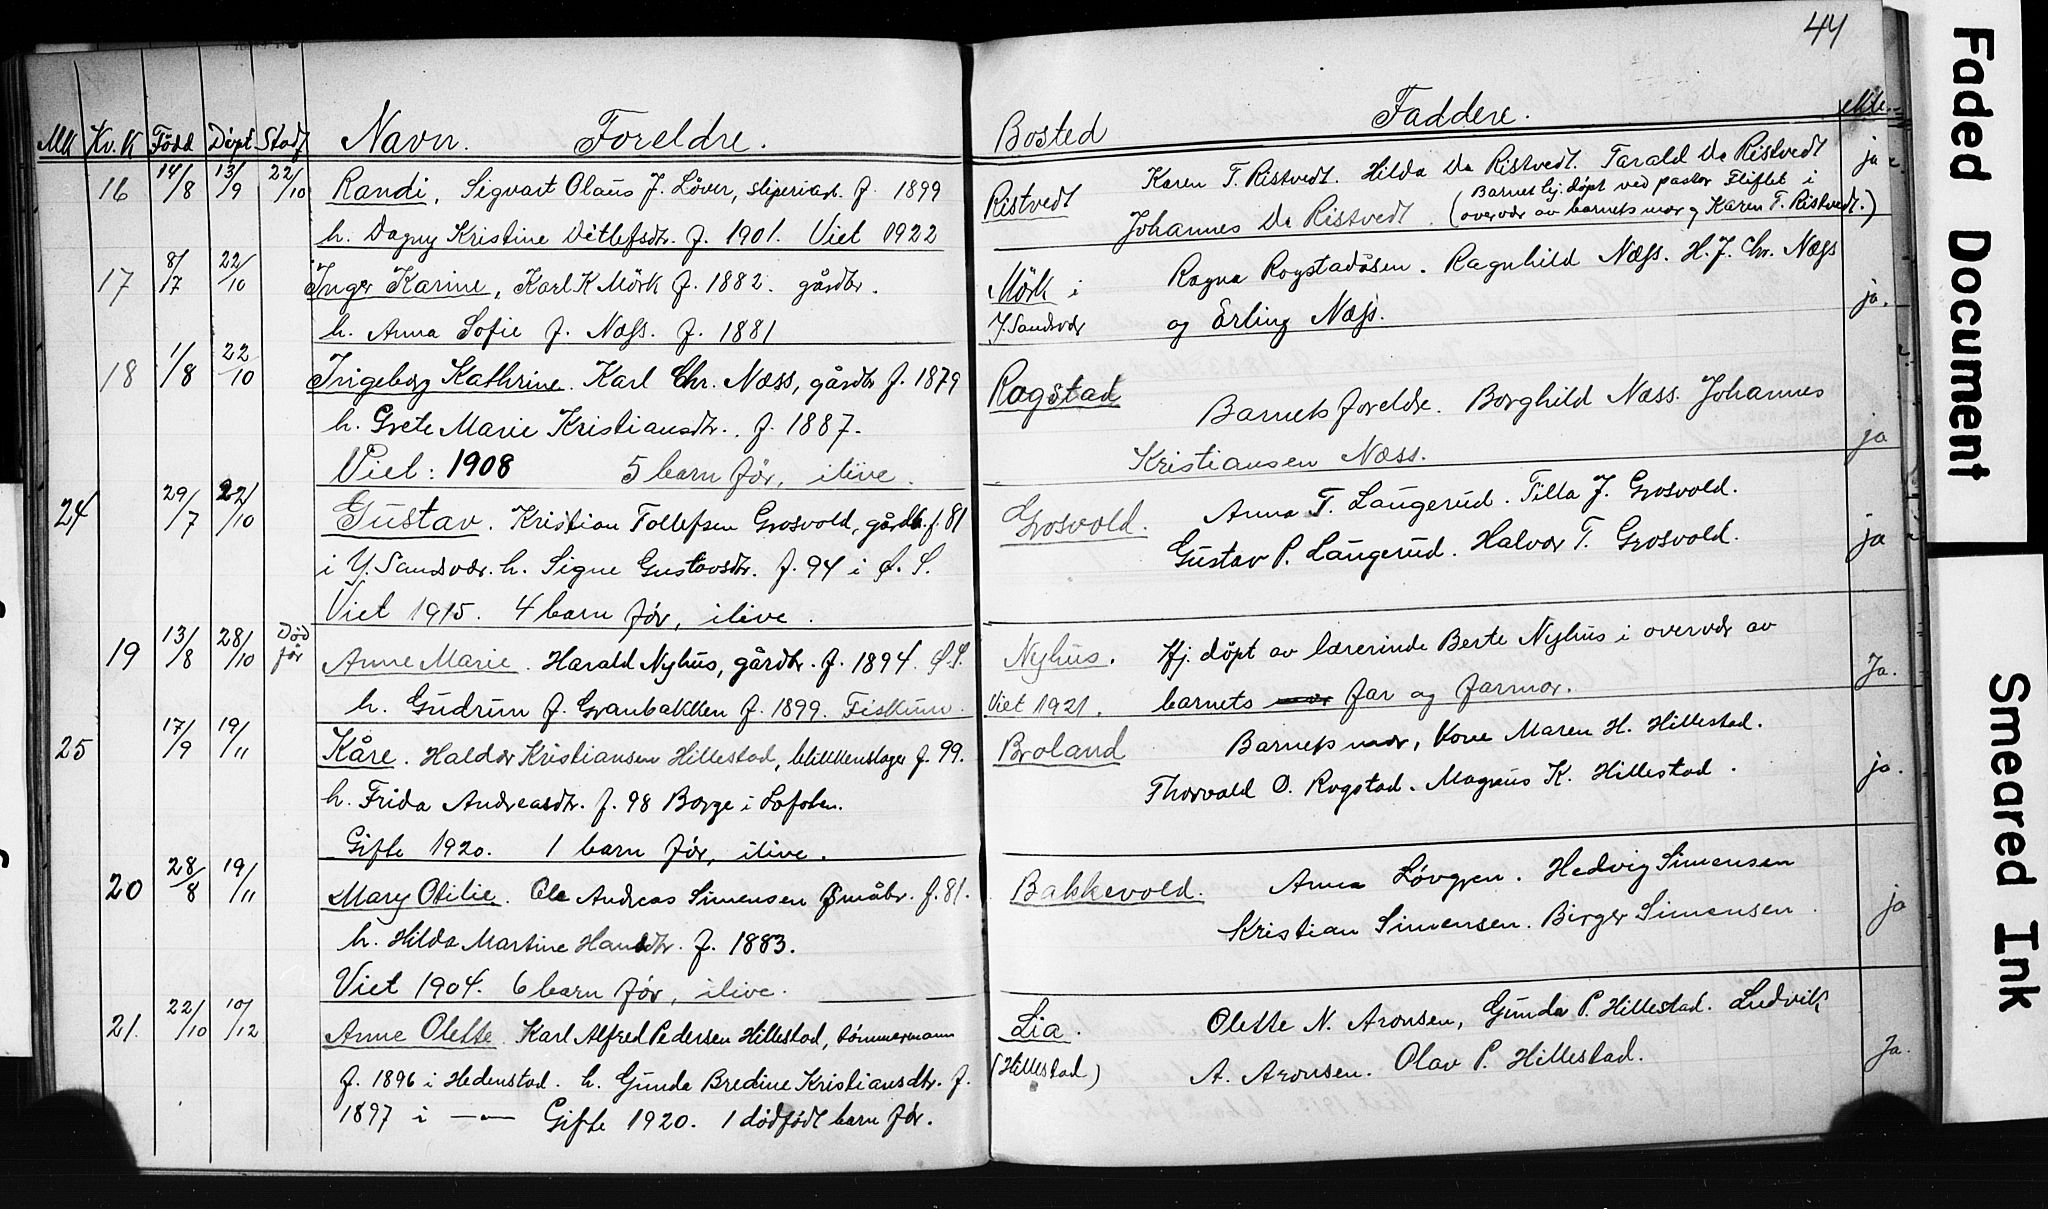 44
Mk Kv.K Född Döpt. Stadf Navn. Foreldre. Bosted Faddere. ekte.
16 14/8 13/9 22/10 Randi, Sigvart Olaus J. Löver, sliperiarb. f. 1899
h. Dagny Kristine Ditlefsdtr. f. 1901. Viet 1922
Ristvedt Karen T. Ristvedt. Hilda Da Ristvedt. Tarald Da Ristvedt ja
Johannes Da Ristvedt. (Barnet hj. døpt ved pastor Fliflet i
overvær av barnets mor og Karen T. Ristvedt.)
17 8/7 22/10 Inger Karine, Karl K Mörk f. 1882. gårdbr.
h. Anna Sofie f. Næss. f. 1881
Mörk i Ragna Rogstadåsen. Ragnhild Næss. H. J. Chr. Næss
Y. Sandsvær og Erling Næss. ja.
18 1/8 22/10 Ingeborg Kathrine. Karl Chr. Næss, gårdbr f. 1879
h. Grete Marie Kristiansdtr. f. 1887.
Viet: 1908 5 barn før, ilive.
Rogstad Barnets foreldre. Borghild Næss. Johannes
Kristiansen Næss. ja
24 29/7 22/10 Gustav. Kristian Tollefsen Grosvold, gårdb. f. 81
i Y. Sandsvær. h. Signe Gustavsdtr. f. 94 i Ø. S.
Viet 1915. 4 barn før, ilive.
Grosvold. Anna T. Laugerud. Tilla J. Grosvold.
Gustav P. Laugerud. Halvor T. Grosvold. ja
19 13/8 28/10 Död för Anne Marie. Harald Nyhus, gårdbr. f. 1894. Ø.S.
h. Gudrun f. Granbakken f. 1899. Fiskum.
Nyhus. Hj. döpt av lærerinde Berte Nyhus i overvær av
Viet 1921. barnets mor far og farmor. Ja.
25 17/9 19/11 Kåre. Haldor Kristiansen Hillestad, blikkenslager f. 99.
h. Frida Andreasdtr. f. 98 Borge i Lofoten.
Gifte 1920. 1 barn før, ilive.
Broland Barnets mor, Kone Maren H. Hillestad.
Thorvald O. Rogstad. Magnus K. Hillestad. ja.
20 28/8 19/11 Mary Otilie. Ole Andreas Simensen Småbr. f. 81.
h. Hilda Martine Hansdtr. f. 1883.
Viet 1904. 6 barn før, ilive.
Bakkevold. Anna Lövgren. Hedvig Simensen
Kristian Simensen. Birger Simensen. ja
21. 22/10 10/12 Anne Olette. Karl Alfred Pedersen Hillestad, tömmermann
f. 1896 i Hedenstad. h. Gunda Bredine Kristiansdtr. f.
1897 i —"— Gifte 1920. 1 dödfödt barn før.
Lia. Olette N. Aronsen, Gunda P. Hillestad. Ludvik
(Hillestad) A. Aronsen. Olav P. Hillestad. Ja.
Faded Document
Smeared Ink